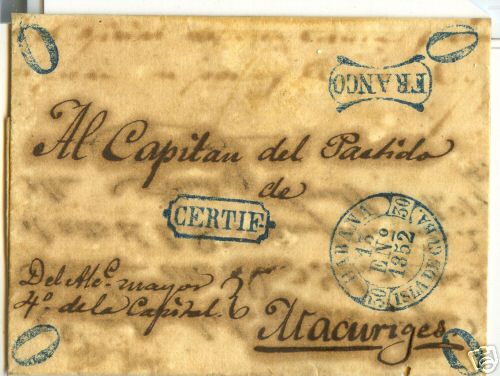 O
O
FRANCO
Al Capitan del Partido
de
CERTIF.
HABANA
30
17
ENº
1852
30
ISLA DE CUBA
Del Alc.e mayor
4º. de la Capital.
Macuriges
O
O